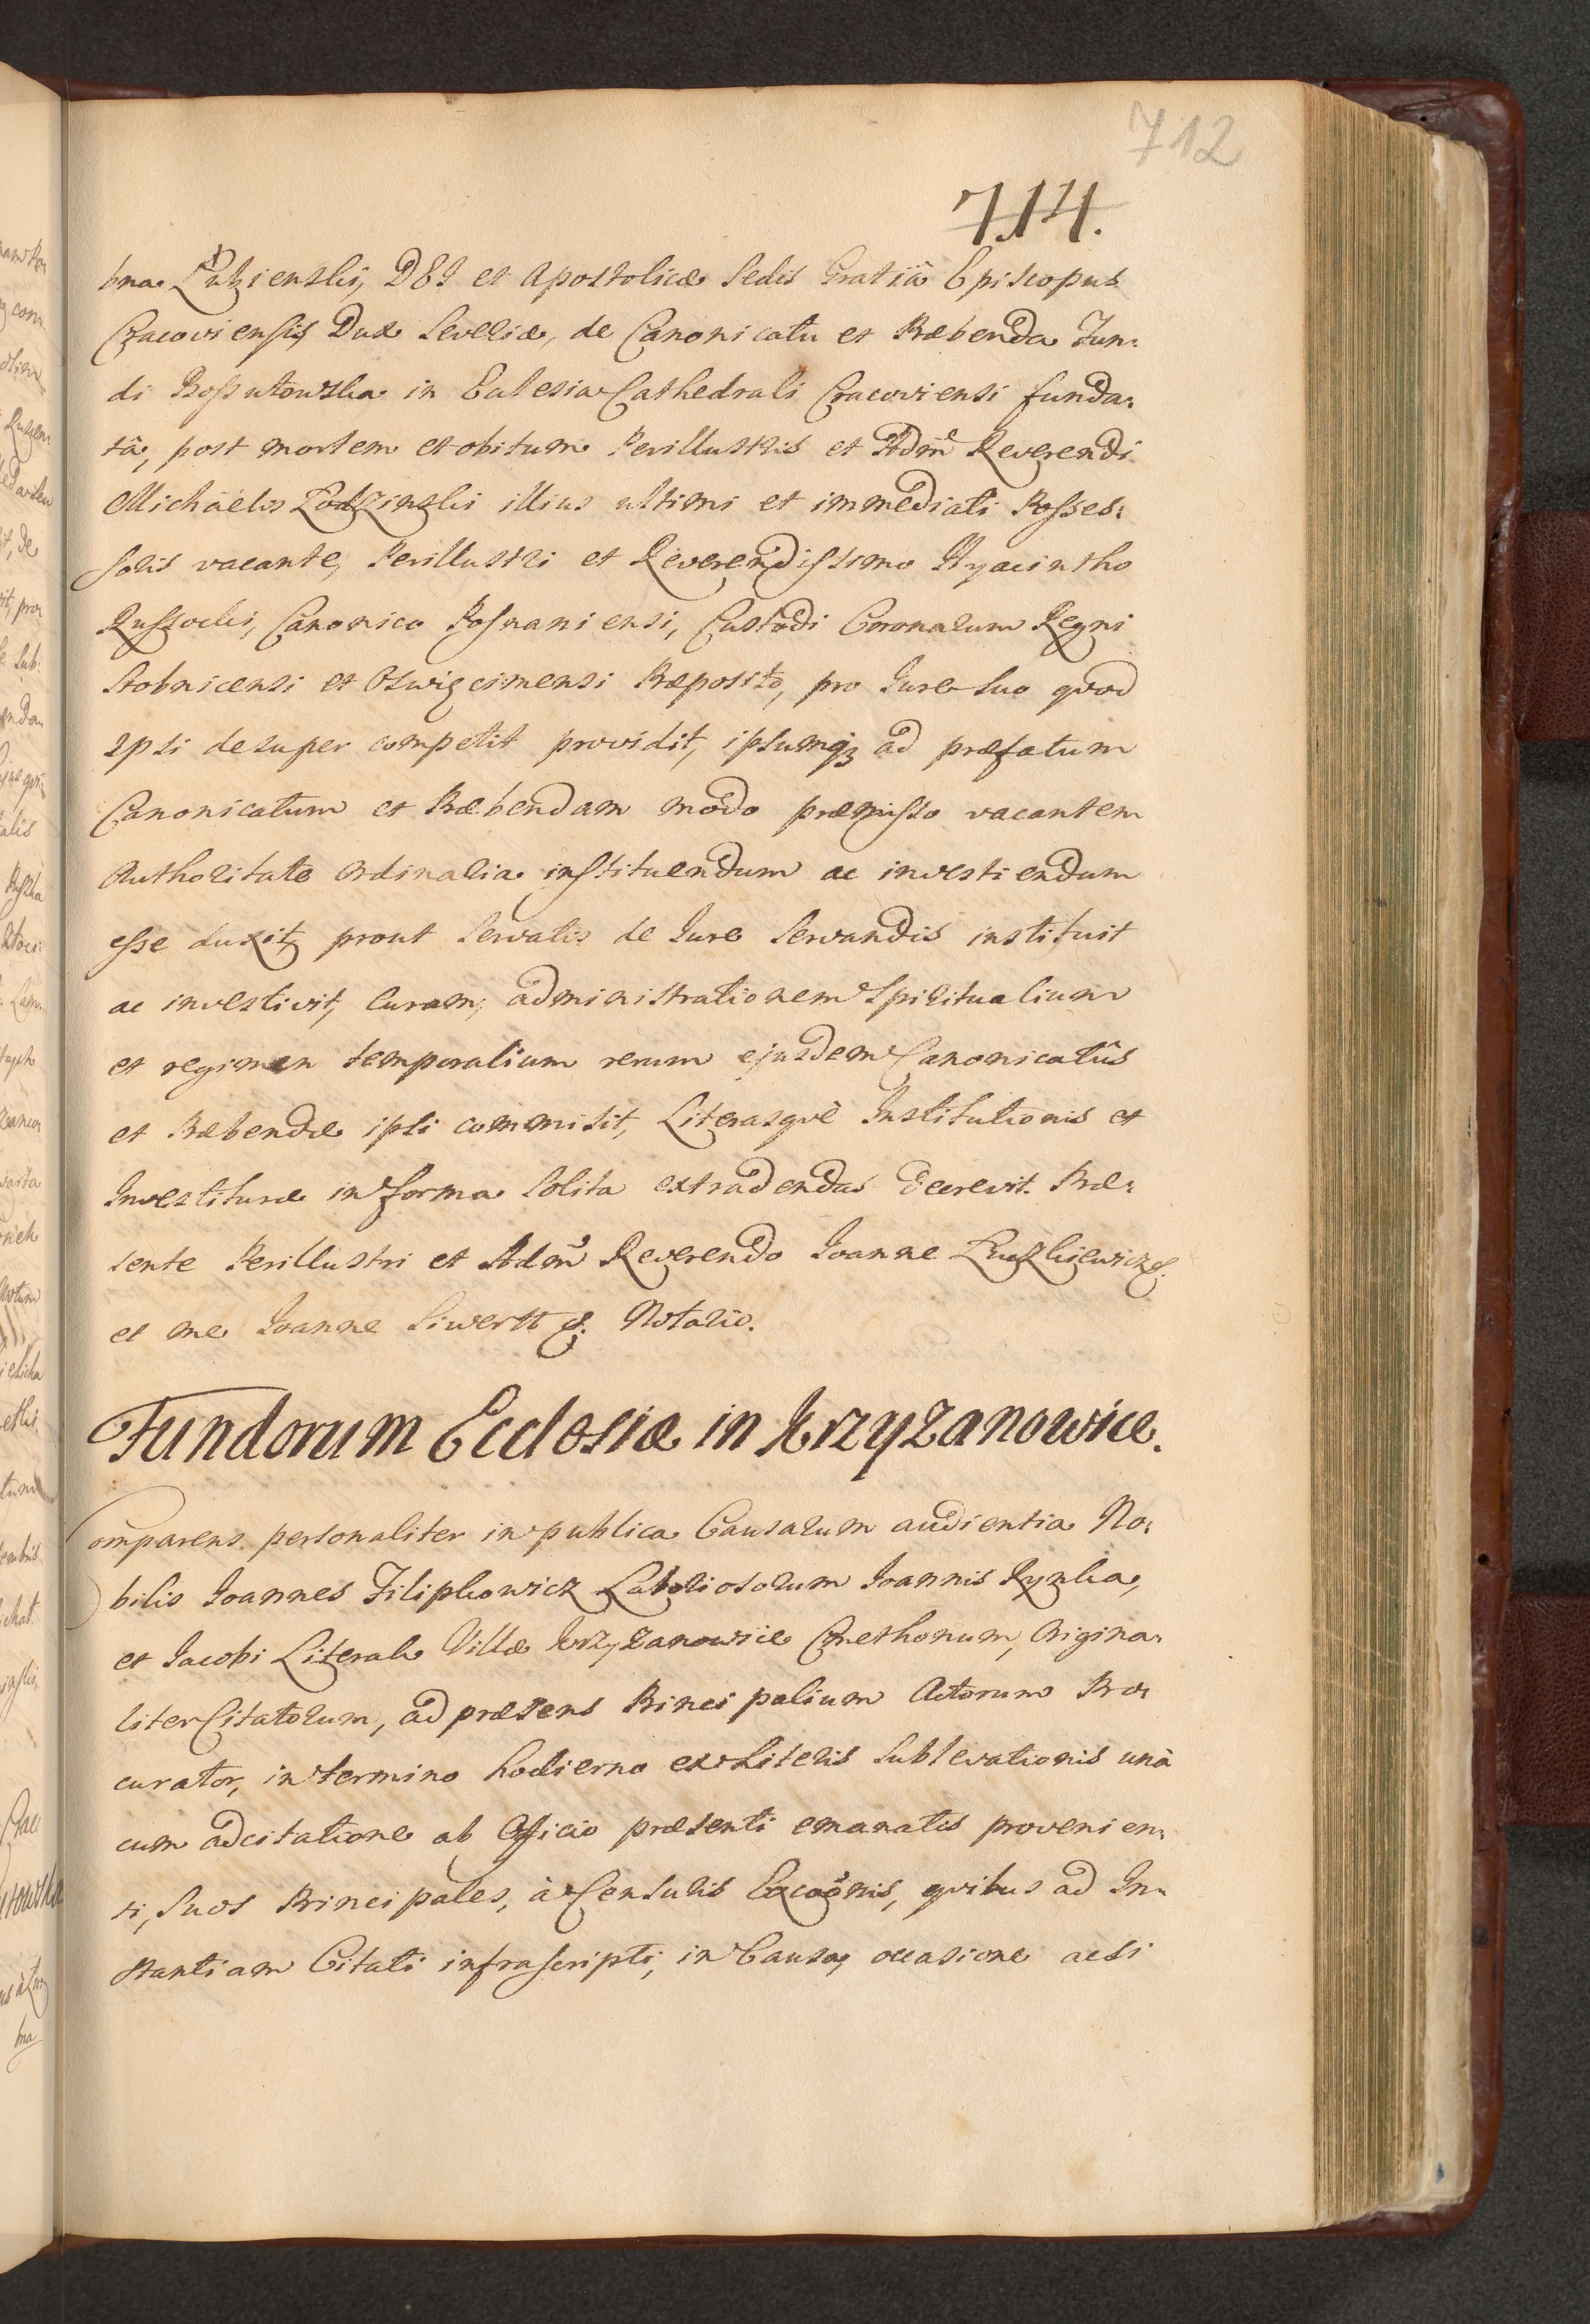 712
714.
bna Łubienski, DEI et Apostolicæ Sedis Gratiâ Episcopus
Cracoviensis, Dux Severiæ, de Canonicatu et Præbenda Fun:
di Bossutowska in Ecclesia Cathedrali Cracoviensi funda:
tâ, post mortem et obitum Perillustris et Adm̃ Reverendi
Michaelis Łodzinski illius ultimi et immediati Posses:
soris vacante, Perillustri et Reverendissimo Hyacintho
Russocki, Canonico Posnaniensi, Custodi Coronarum Regni
Stobnicensi et Oswięcimensi Præposito, pro Jure suo qvod
ipsi desuper competit providit, ipsumq3 ad præfatum
Canonicatum et Præbendam modo præmisso vacantem
Authoritate Ordinaria instituendum ac investiendum
esse duxit, prout servatis de Jure servandis instituit
ac investivit, curam, administrationem Spiritualium
et regimen temporalium rerum ejusdem Canonicatûs
et Præbendæ ipsi commisit, Literasqvè Institutionis et
Investituræ in forma solita extradendas decrevit. Præ:
sente Perillustri et Adm̃ Reverendo Joanne
et me Joanne Siwertt Notario.
Fundorum Ecclesiæ in Krzyzanowice.
Comparens personaliter in publica Causarum audientia No:
bilis Joannes Filipkowicz Laboriosorum Joannis Rynka,
et Jacobi Literak Villæ Krzyzanowice Cmethonum, Origina:
liter Citatorum, ad præsens Principalium Actorum Pro:
curator, in termino hodierno ex Literis sublevationis unà
cum adcitatione ab Officio præsenti emanatis provenien:
ti, suos Principales, à Censuris Excoõnis, qvibus ad In:
stantiam Citati infrascripti, in Causa, occasione acsi